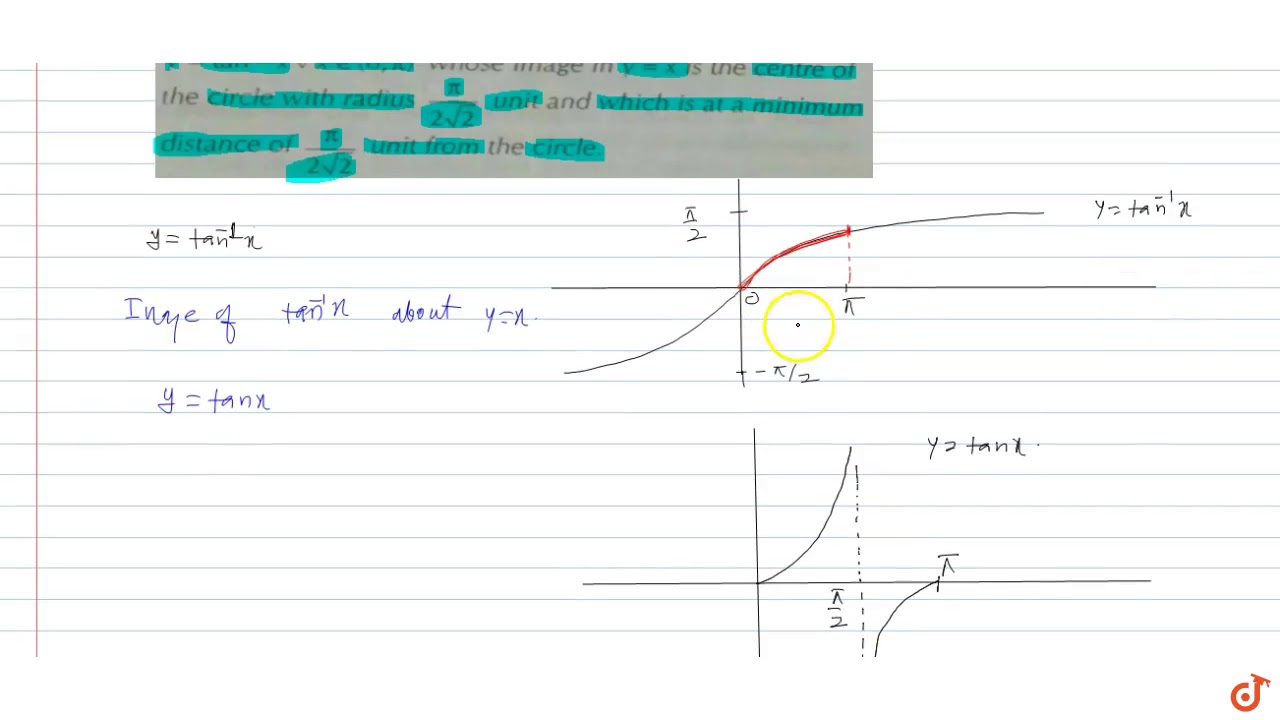 whose image in y = x is the centre of
the circle with radius π/2√2 unit and which is at a minimum
distance of π/2√2 unit from the circle.
π/2
y = tan⁻¹x
y = tan⁻¹x
0
π
Image of tan⁻¹x about y=x.
-π/2
y = tanx
y = tanx.
π
π/2